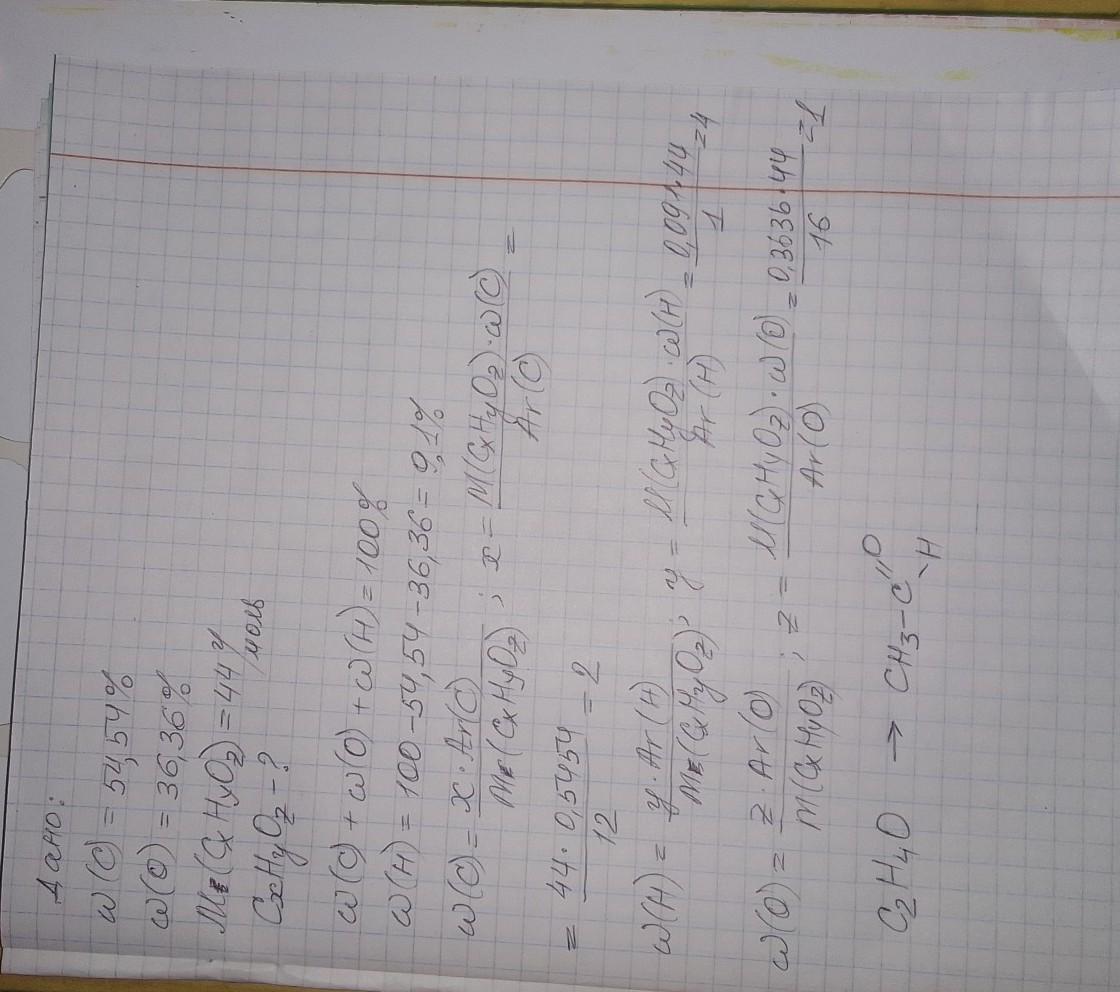 Дано:
ω(C) = 54,54%
ω(O) = 36,36%
M(CxHyOz) = 44 г/моль
CxHyOz - ?
ω(C) + ω(O) + ω(H) = 100%
ω(H) = 100 - 54,54 - 36,36 = 9,1%
ω(C) = x·Ar(C) / M(CxHyOz) ; x = M(CxHyOz)·ω(C) / Ar(C) =
= 44·0,5454 / 12 = 2
ω(H) = y·Ar(H) / M(CxHyOz) ; y = M(CxHyOz)·ω(H) / Ar(H) = 0,091·44 / 1 = 4
ω(O) = z·Ar(O) / M(CxHyOz) ; z = M(CxHyOz)·ω(O) / Ar(O) = 0,3636·44 / 16 = 1
C2H4O → CH3-C=O -H